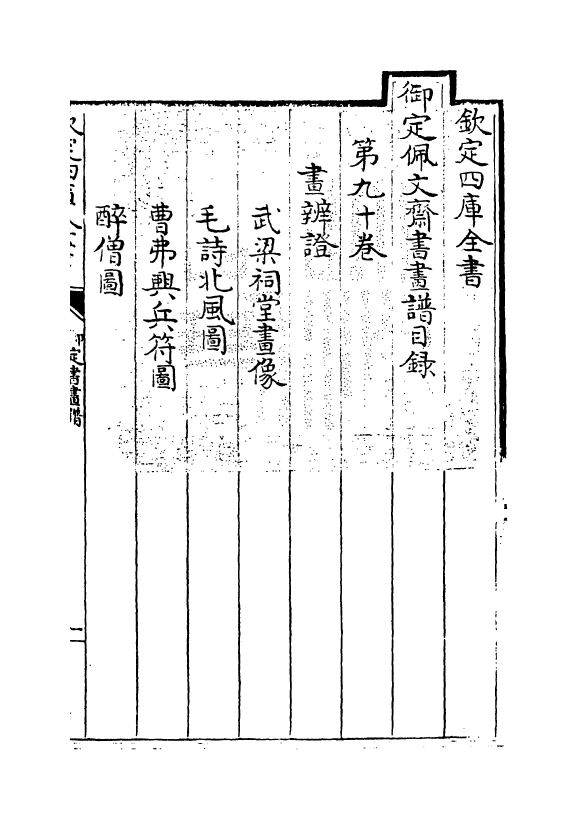 欽定四庫全書
御定佩文齋書畫譜目録
第九十卷
畫辨證
武梁祠堂畫像
毛詩北風圖
曹弗興兵符圖
醉僧圖